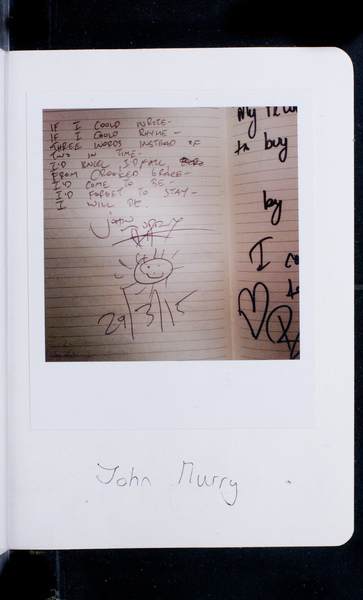 IF I COULD WROTE-
IF I COULD RHYME-
THREE WORDS INSTEAD OF
TWO IN TIME-
I'D KNEEL, I'D FALL,
FROM CROOKED GRACE-
I'D COME TO BE-
I'D FORGET TO STAY-
I WILL BE.
JOHN MURRY
29/3/15
My
to buy
by
I
John Murry